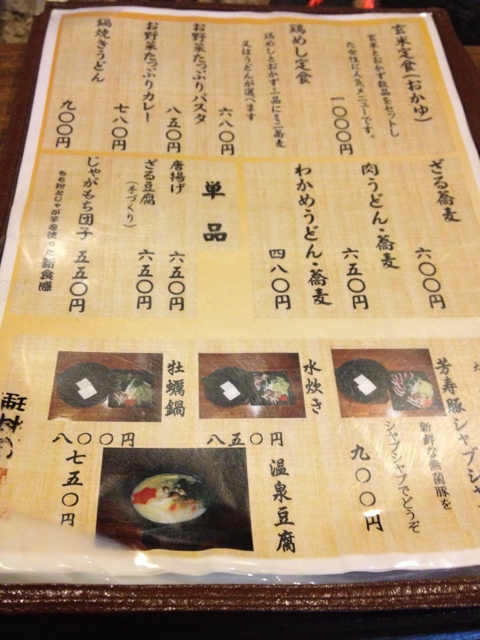 玄米定食(おかゆ)
玄米とおかず数品をセットし
た女性に人気メニューです。
一〇〇〇円
鶏めし定食
鶏めしとおかず二品にミニ蕎麦
又はうどんが選べます
六八〇円
お野菜たっぷりパスタ
八五〇円
お野菜たっぷりカレー
七八〇円
鍋焼きうどん
九〇〇円
ざる蕎麦
六〇〇円
肉うどん・蕎麦
六五〇円
わかめうどん・蕎麦
四八〇円
単品
唐揚げ
六五〇円
ざる豆腐
(手づくり)
六五〇円
じゃがもち団子
五五〇円
もち粉とじゃが芋を使った新食感
芳寿豚シャブシャ
新鮮な無菌豚を
シャブシャブでどうぞ
九〇〇円
水炊き
八五〇円
牡蠣鍋
八〇〇円
温泉豆腐
七五〇円
料理